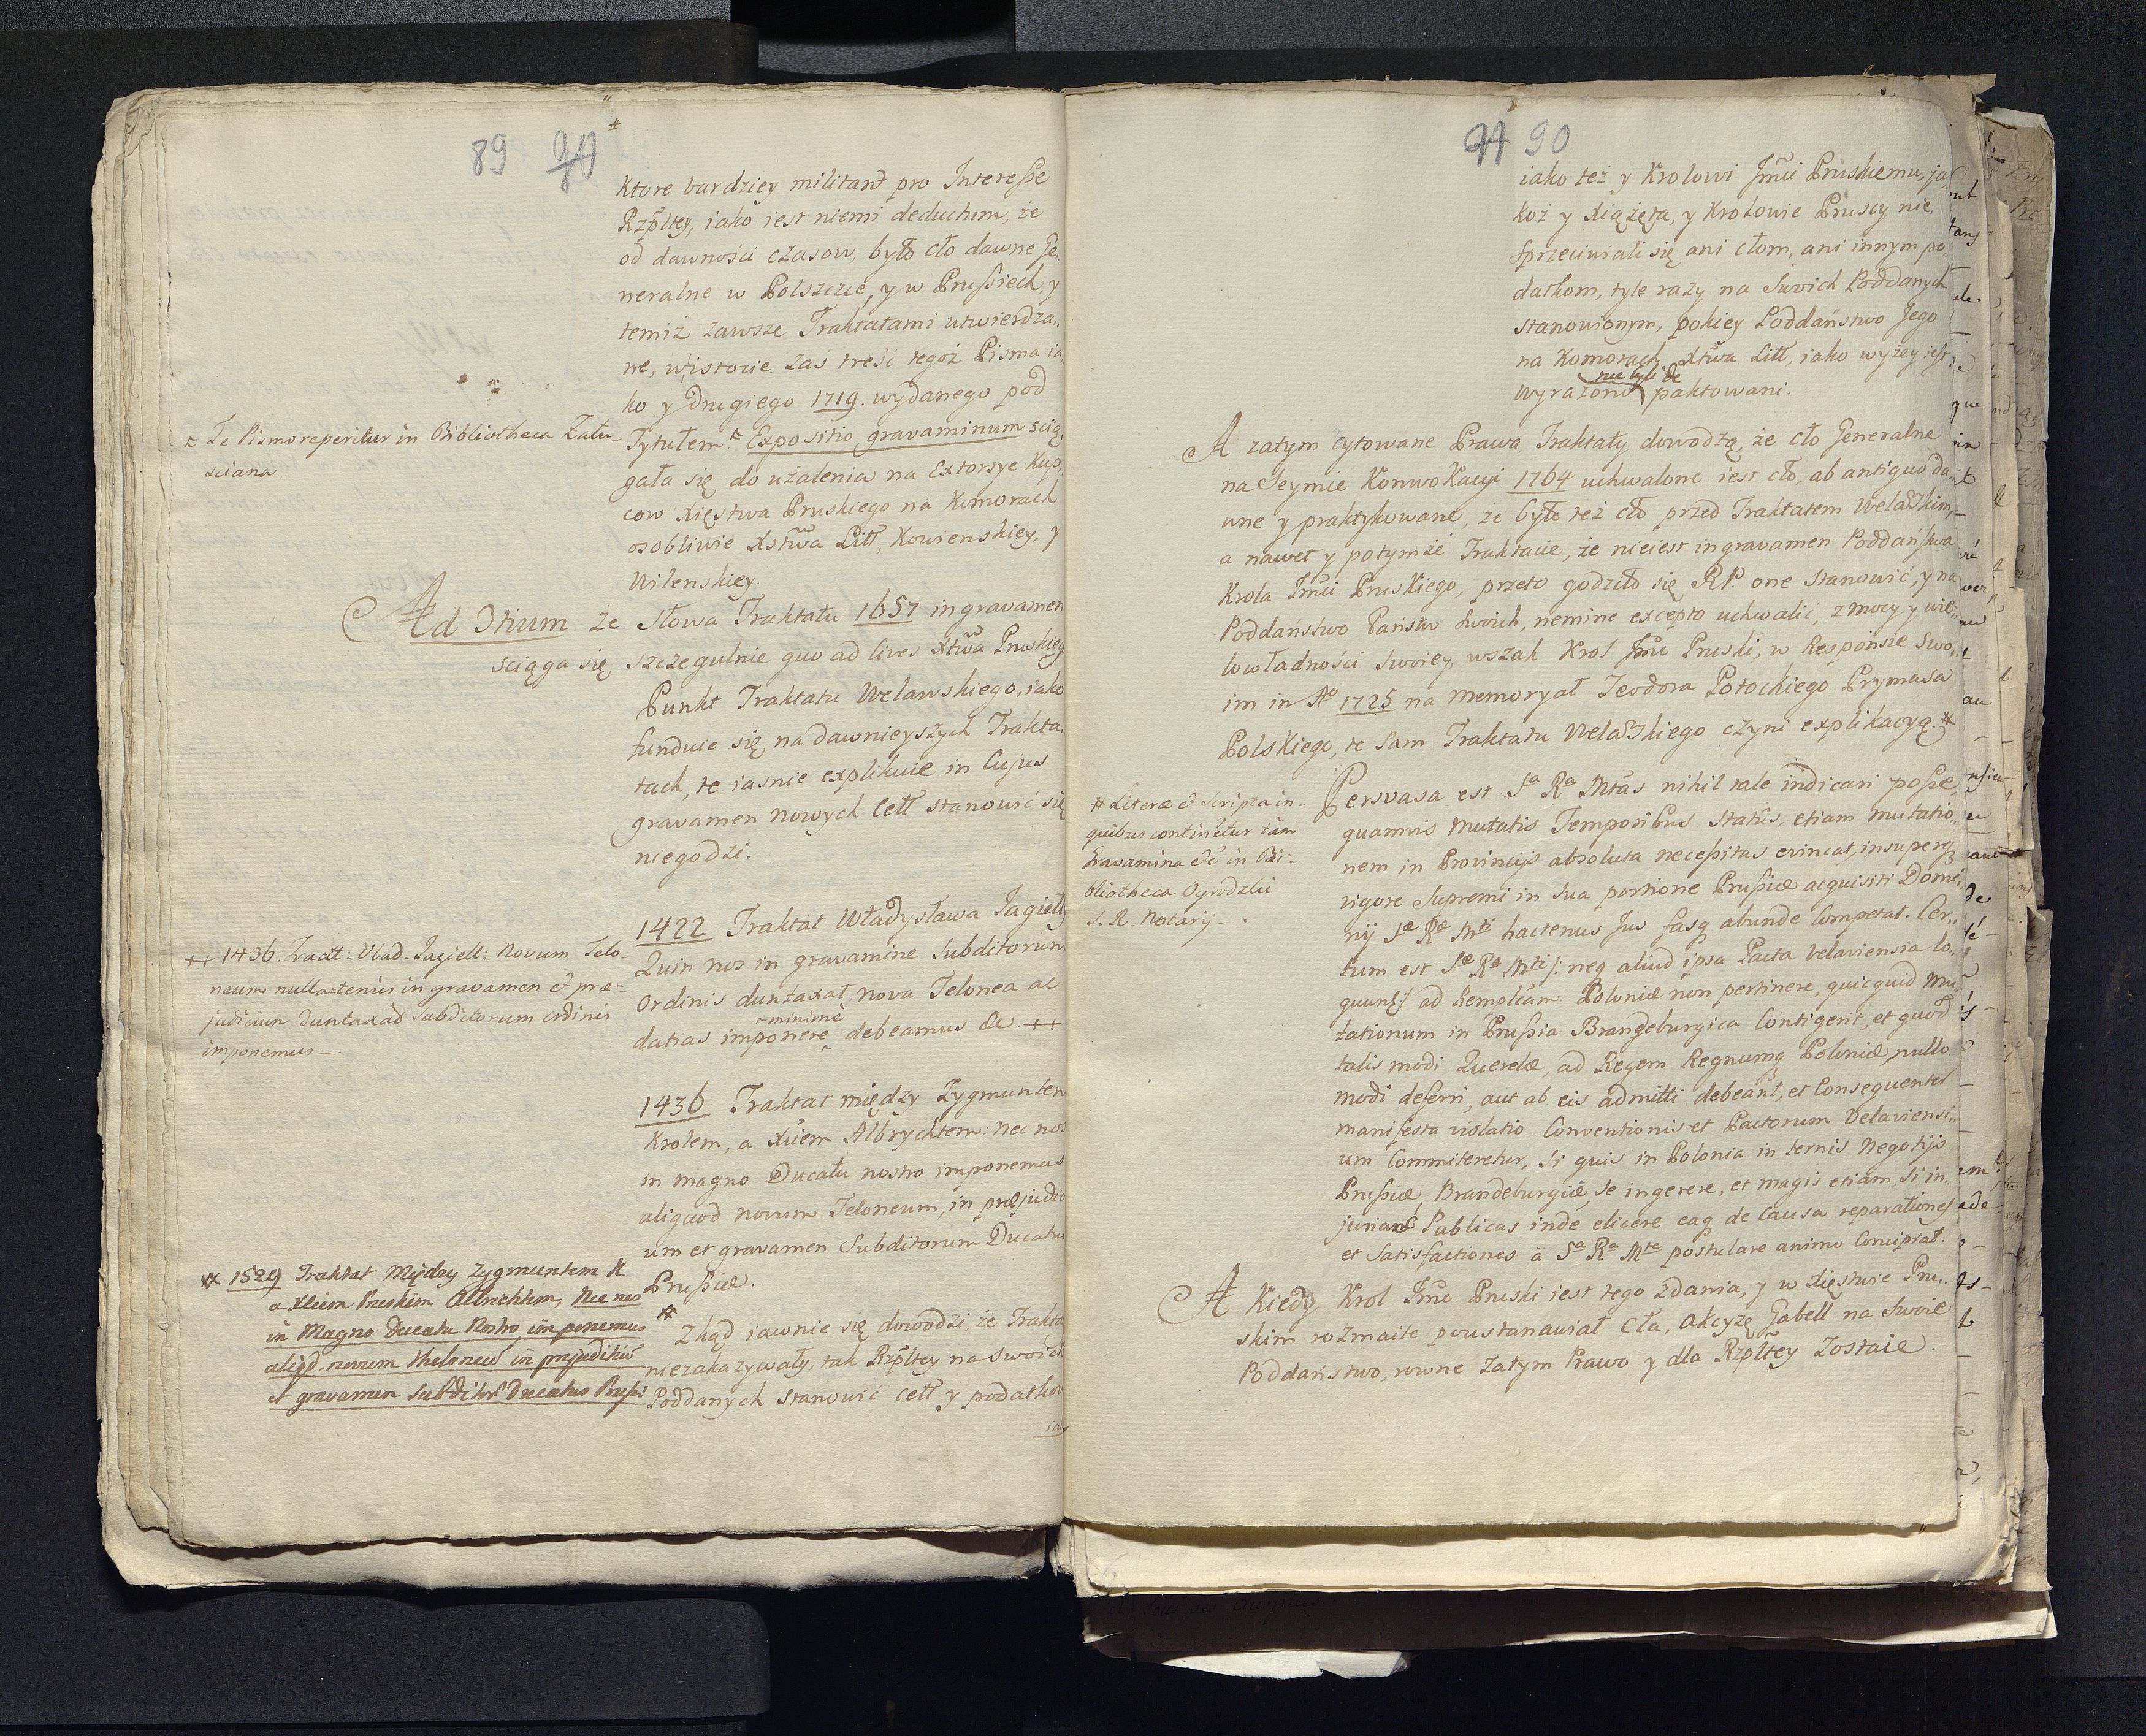 89
ktore bardziey militant pro Interesse
Rzpltey, iako iest niemi deductum, że
od dawności czasow, było cło dawne Ge„
neralne w Polszcze, y w Prusiech, y
temiż zawsze Traktatami utwierdza„
ne, w istocie zaś treść tegoż Pisma ia„
ko y drugiego 1719. wydanego pod
Tytułem Expositio gravaminum scią„
gała się do użalenia na Extorsye Kup„
cow Xięstwa Pruskiego na Komorach
osobliwie Xstwa Litt, Kowienskiey, y
Wilenskiey.
Te Pismo reperitur in Bibliotheca Zału–
sciana
Ad 3tium że słowa Traktatu 1657 in gravamen
sciąga się szczegulnie quo ad Cives Xtwa Pruskieg
Punkt Traktatu Welawskiego, iako
funduie się na dawnieyszych Trakta„
tach, te iasnie explikuie in Cujus
gravamen nowych Cełł stanowić się
niegodzi.
1422 Traktat Władysława Jagiełły
Quin nos in gravamine Subditorum
Ordinis duntaxat, nova Telonea ac
minimè
datias imponere debeamus &c. ++
++ 1436. Tractt: Vlad. Jagiell: Novum Telo–
neum nullatenus in gravamen & præ–
judicium duntaxad Subditorum Ordinis
imponemus –.
1436 Traktat między Zygmuntem
Krolem, a Xciem Albrychtem: Nec nos
in magno Ducatu nostro imponemus
aliquod novum Teloneum, in præjudici
um et gravamen Subditorum Ducatus
Prussiæ.
1529 Traktat Między Zygmuntem K
a Xciem Pruskim Albrichtem, Nec nos
in Magno Ducatu Nostro imponemus
aliqd. novum theloneu in prejuditiu
et gravamen Subditor Ducatus Prussi
Zkąd iawnie się dowodzi, że Trakta
niezakazywały, tak Rzpltey na swoich
Poddanych stanowić Cełł y podatkow
iak
90
iako też y Krolowi Jmci Pruskiemu, ja„
koż y Xiążęta, y Krolowie Pruscy nie„
sprzeciwiali się ani cłom, ani innym po„
datkom, tyle razy na Swoich Poddanych
stanowionym, pokiey Poddaństwo Jego
na Komorach Xtwa Litt, iako wyżey iest
nie byli de
wyrażono paktowani.
A zatym cytowane Prawa Traktaty dowodzą, że cło Generalne
na Seymie Konwokacyi 1764 uchwalone iest cło, ab antiquo da„
wne y praktykowane, że było też cło przed Traktatem Welawskim,
a nawet y potymże Traktacie, że nieiest in gravamen Poddaństwa
Krola Jmci Pruskiego, przeto godziło się RP. one stanowić, y na
Poddaństwo Państw Swoich, nemine excepto uchwalić, z mocy y wiel„
lowładności swoiey, wszak Krol Jmć Pruski, w Responsie Swo„
im in Ao 1725 na memoryał Teodora Potockiego Prymasa
Polskiego, te sam Traktatu Welawskiego czyni explikacyą.
Literæ & Scripta in–
quibus continetur tam
Gravamina &c in Bi–
bliotheca Ogrodzki
S. R. Notarij –.
Persvasa est Sa Ra Mtas nihil tale indicari posse,
quamvis mutatis Temporibus statûs, etiam mutatio„
nem in Provincijs absoluta necessitas evincat, insuperq
vigore Supremi in sua portione Prussiæ acquisiti Domi„
nij Sæ Ræ Mti hactenus Jus fasq abunde Competat. Cer„
tum est Sæ Ræ Mti /: neq aliud ipsa Pacta Velaviensia lo„
quunt:/ ad Remplcam Poloniæ non pertinere, quicquid mu
tationum in Prussia Brandeburgica Contigerit, et quod
talis modi Querelæ, ad Regem Regnumq Poloniæ, nullo
modi deferri, aut ab eis admitti debeant, et Consequenter
manifesta violatio Conventionis et Pactorum Velaviensi„
um Committeretur, si quis in Polonia in ternis Negotijs
Prussiæ, Brandeburgiæ, se ingerere, et magis etiam, si in„
Publicas indé elicere eaq de Causa reparationes
et Satisfactiones à Sa Ra Mte postulare animo Concipiat.
A Kiedy Krol Jmć Pruski iest tego zdania, y w Xięstwie Pru„
skim rozmaite poustanawiał cła, Akcyzę Gabell na swoie
Poddaństwo, rowne zatym Prawo y dla Rzpltey Zostaie.